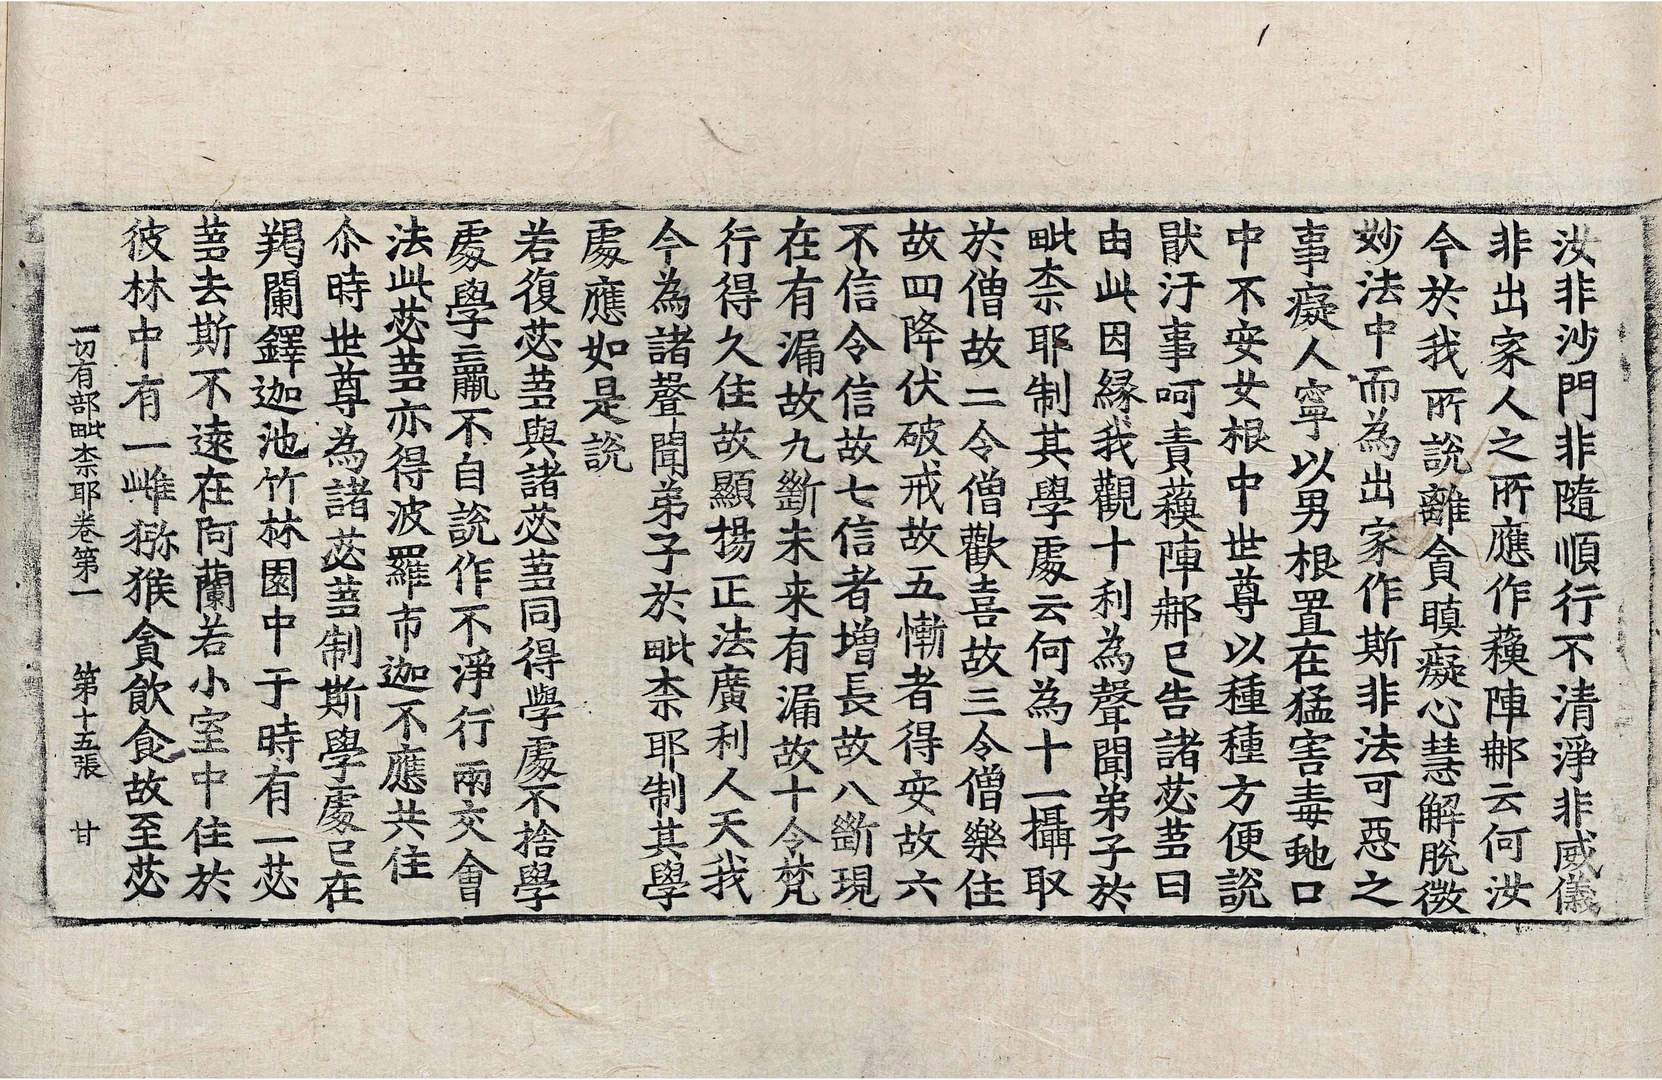 汝非沙門非隨順行不清淨非威儀
非出家人之所應作蘓陣郍云何汝
今於我所說離貪瞋癡心慧解脫微
妙法中而為出家作斯非法可惡之
事癡人寧以男根置在猛害毒虵口
中不安女根中世尊以種種方便說
猒汙事呵責蘓陣郍已告諸苾芻曰
由此因緣我觀十利為聲聞弟子於
毗柰耶制其學處云何為十一攝取
於僧故二令僧歡喜故三令僧樂住
故四降伏破戒故五慚者得安故六
不信令信故七信者增長故八斷現
在有漏故九斷未来有漏故十令梵
行得久住故顯揚正法廣利人天我
今為諸聲聞弟子於毗柰耶制其學
處應如是說
若復苾芻與諸苾芻同得學處不捨學
處學羸不自說作不淨行兩交會
法此苾芻亦得波羅市迦不應共住
尒時世尊為諸苾芻制斯學處已在
羯闌鐸迦池竹林園中于時有一苾
芻去斯不遠在阿蘭若小室中住於
彼林中有一雌猕猴貪飲食故至苾
一切有部毗柰耶卷第一 第十五張 甘